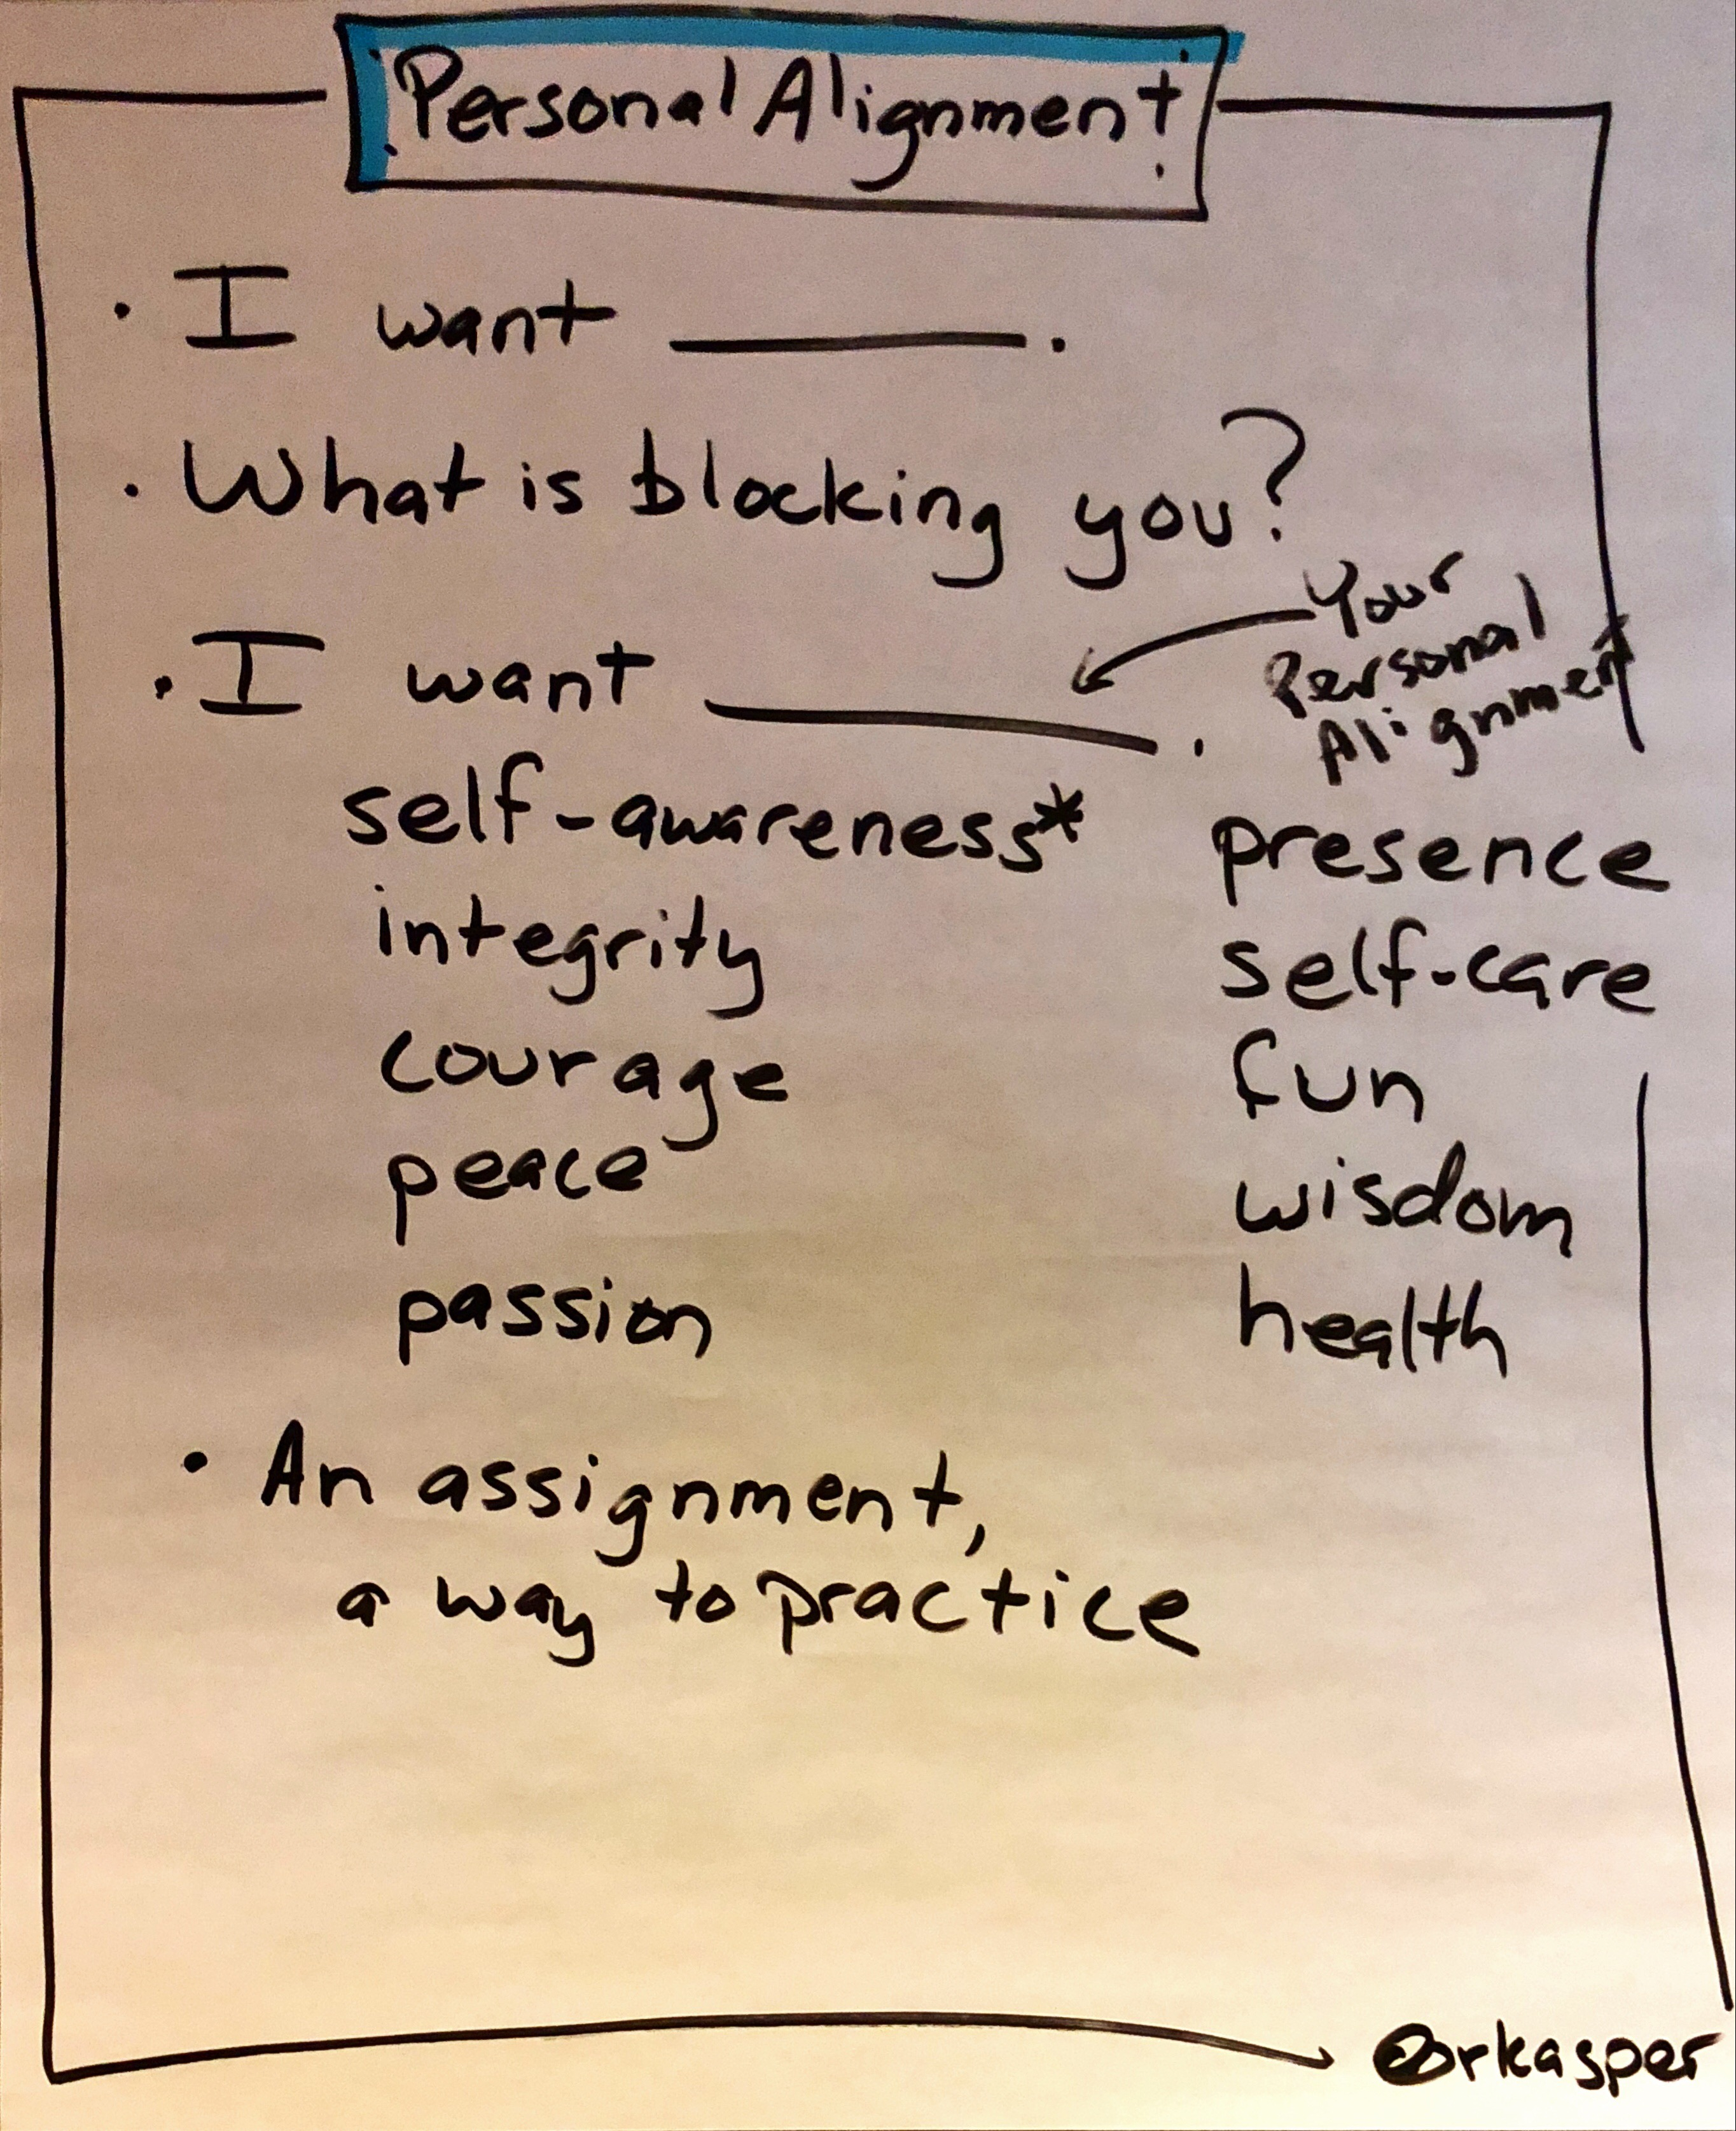 Personal Alignment
· I want ______.
· What is blocking you?
· I want ________.
Your
Personal
Alignment
self-awareness*
integrity
courage
peace
passion
presence
self-care
fun
wisdom
health
· An assignment,
a way to practice
@rkasper